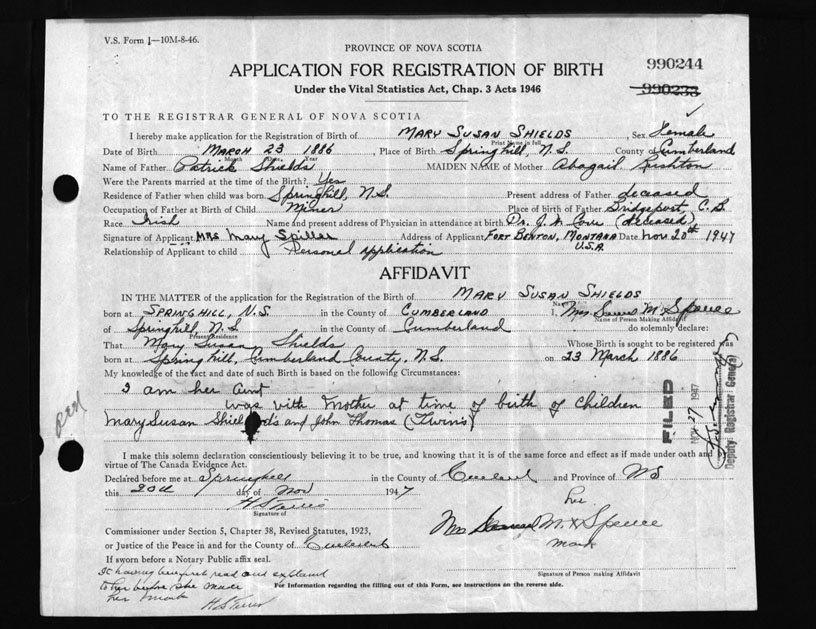 V.S. Form 1—10M-8-46.
PROVINCE OF NOVA SCOTIA
990244
APPLICATION FOR REGISTRATION OF BIRTH
990233
Under the Vital Statistics Act, Chap. 3 Acts 1946
TO THE REGISTRAR GENERAL OF NOVA SCOTIA
I hereby make application for the Registration of Birth of MARY SUSAN SHIELDS, Sex Female
Print Name in full
Date of Birth MARCH 23 1886, Place of Birth Springhill, N.S. County of Cumberland
Month Date Year
Name of Father Patrick Shields MAIDEN NAME of Mother Abagail Rushton
Were the Parents married at the time of the Birth? Yes
Residence of Father when child was born Springhill, N.S. Present address of Father deceased
Occupation of Father at Birth of Child Miner Place of birth of Father Bridgeport, C.B.
Race Irish Name and present address of Physician in attendance at birth Dr. J. W. (deceased)
Signature of Applicant MRS Mary Spiller Address of Applicant FORT BENTON, MONTANA U.S.A. Date Nov 20th 1947
Relationship of Applicant to child Personal application
AFFIDAVIT
IN THE MATTER of the application for the Registration of the Birth of MARY SUSAN SHIELDS
born at SPRINGHILL, N.S. in the County of CUMBERLAND I, Mrs. M. Spence
Name of Person Making Affidavit
of Springhill, N.S. in the County of Cumberland do solemnly declare:
Present Residence
That Mary Susan Shields Whose Birth is sought to be registered was
born at Springhill, Cumberland County, N.S. on 23 March 1886
My knowledge of the fact and date of such Birth is based on the following Circumstances:
I am her Aunt
was with Mother at time of birth of Children
Mary Susan Shields and John Thomas (Twins)
FILED
NOV 27 1947
Deputy Registrar General
I make this solemn declaration conscientiously believing it to be true, and knowing that it is of the same force and effect as if made under oath and by
virtue of The Canada Evidence Act.
Declared before me at Springhill in the County of and Province of NS
this 20th day of Nov 1947
her
Signature of
Mrs M. X Spence
mark
Commissioner under Section 5, Chapter 38, Revised Statutes, 1923,
or Justice of the Peace in and for the County of
If sworn before a Notary Public affix seal.
Signature of Person making Affidavit
It having been first read and explained
to her before she made
her mark
For Information regarding the filling out of this Form, see instructions on the reverse side.